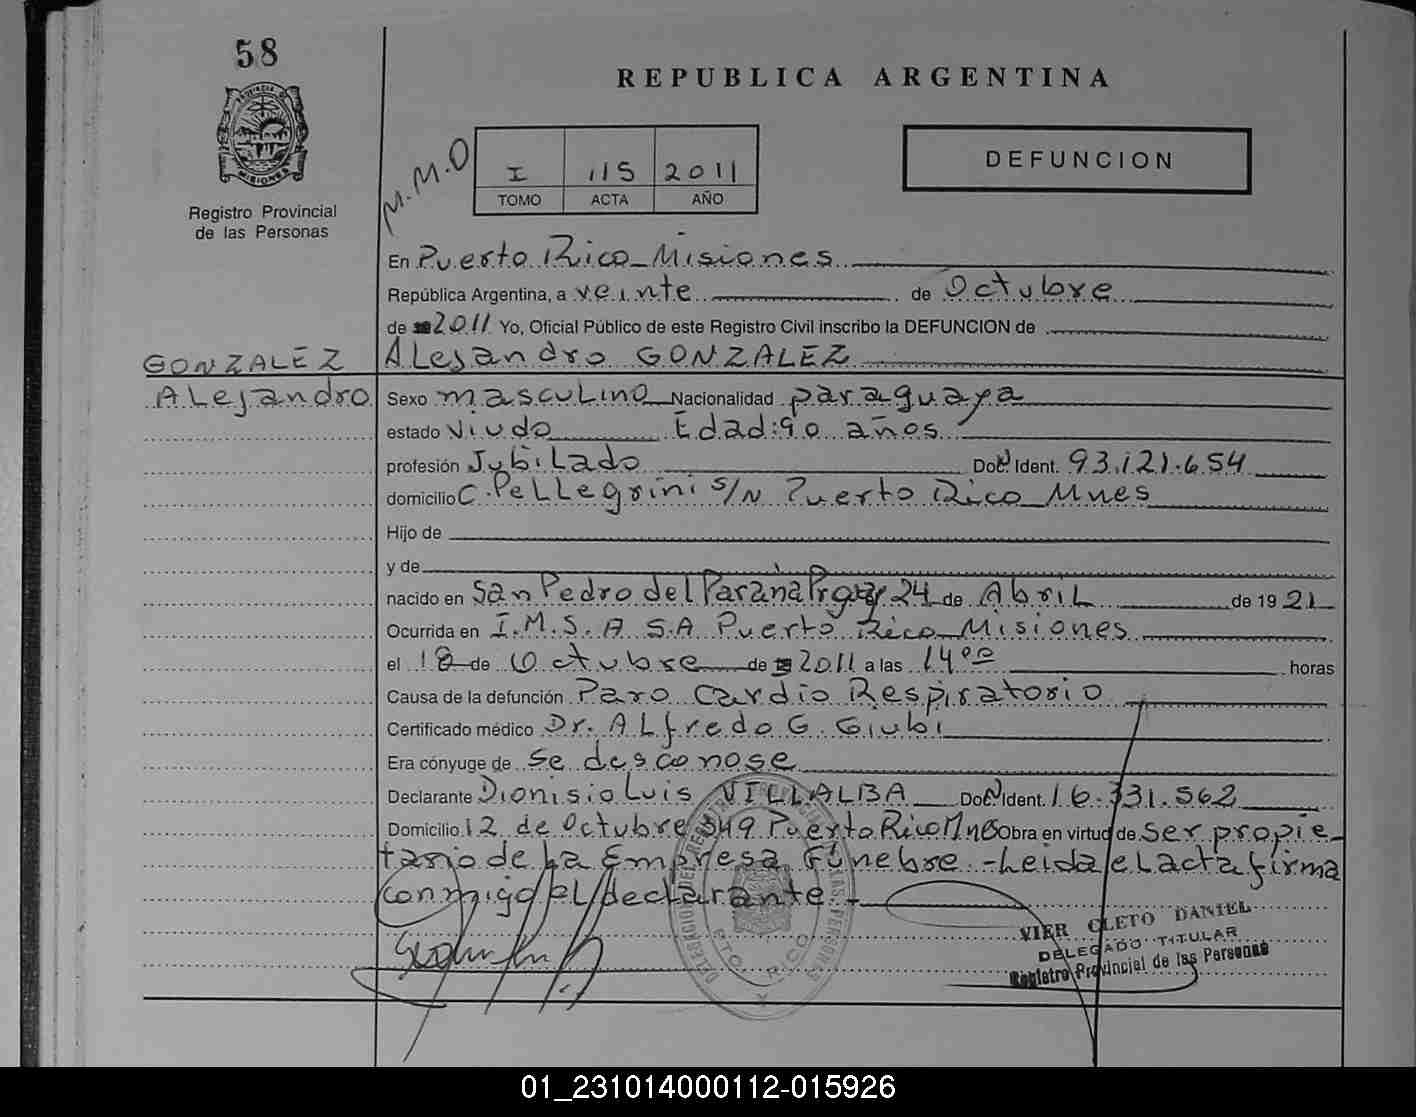 58
REPUBLICA ARGENTINA
PROVINCIA DE
MISIONES
Registro Provincial
de las Personas
M.M.O
I 115 2011
TOMO ACTA AÑO
DEFUNCION
En Puerto Rico - Misiones
República Argentina, a veinte de Octubre
de 2011 Yo, Oficial Público de este Registro Civil inscribo la DEFUNCION de
GONZALEZ Alejandro GONZALEZ
Alejandro Sexo masculino Nacionalidad paraguaya
estado Viudo Edad: 90 años
profesión Jubilado Doc. Ident. 93.121.654
domicilio C. Pellegrini s/N Puerto Rico Mnes
Hijo de
y de
nacido en San Pedro del Paraná Prguay 24 de Abril de 19 21
Ocurrida en I.M.S.A S.A Puerto Rico - Misiones
el 18 de Octubre de 2011 a las 14ºº horas
Causa de la defunción Paro Cardio Respiratorio
Certificado médico Dr. Alfredo G. Giubi
Era cónyuge de Se desconose
Declarante Dionisio Luis VILLALBA Doc. Ident. 16.331.562
Domicilio 12 de Octubre 349 Puerto Rico Mnes Obra en virtud de ser propie-
tario de La Empresa Fúnebre - Leida el acta firma
conmigo el declarante -
DELEGACION DEL REGISTRO PROVINCIAL DE LAS PERSONAS
PTO. RICO
VIER CLETO DANIEL
DELEGADO TITULAR
Registro Provincial de las Personas
01_231014000112-015926